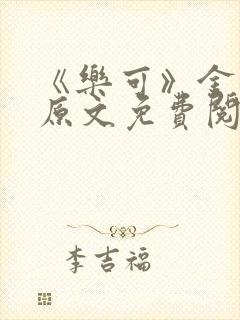 《樂可》全
原文免費閱
李吉福